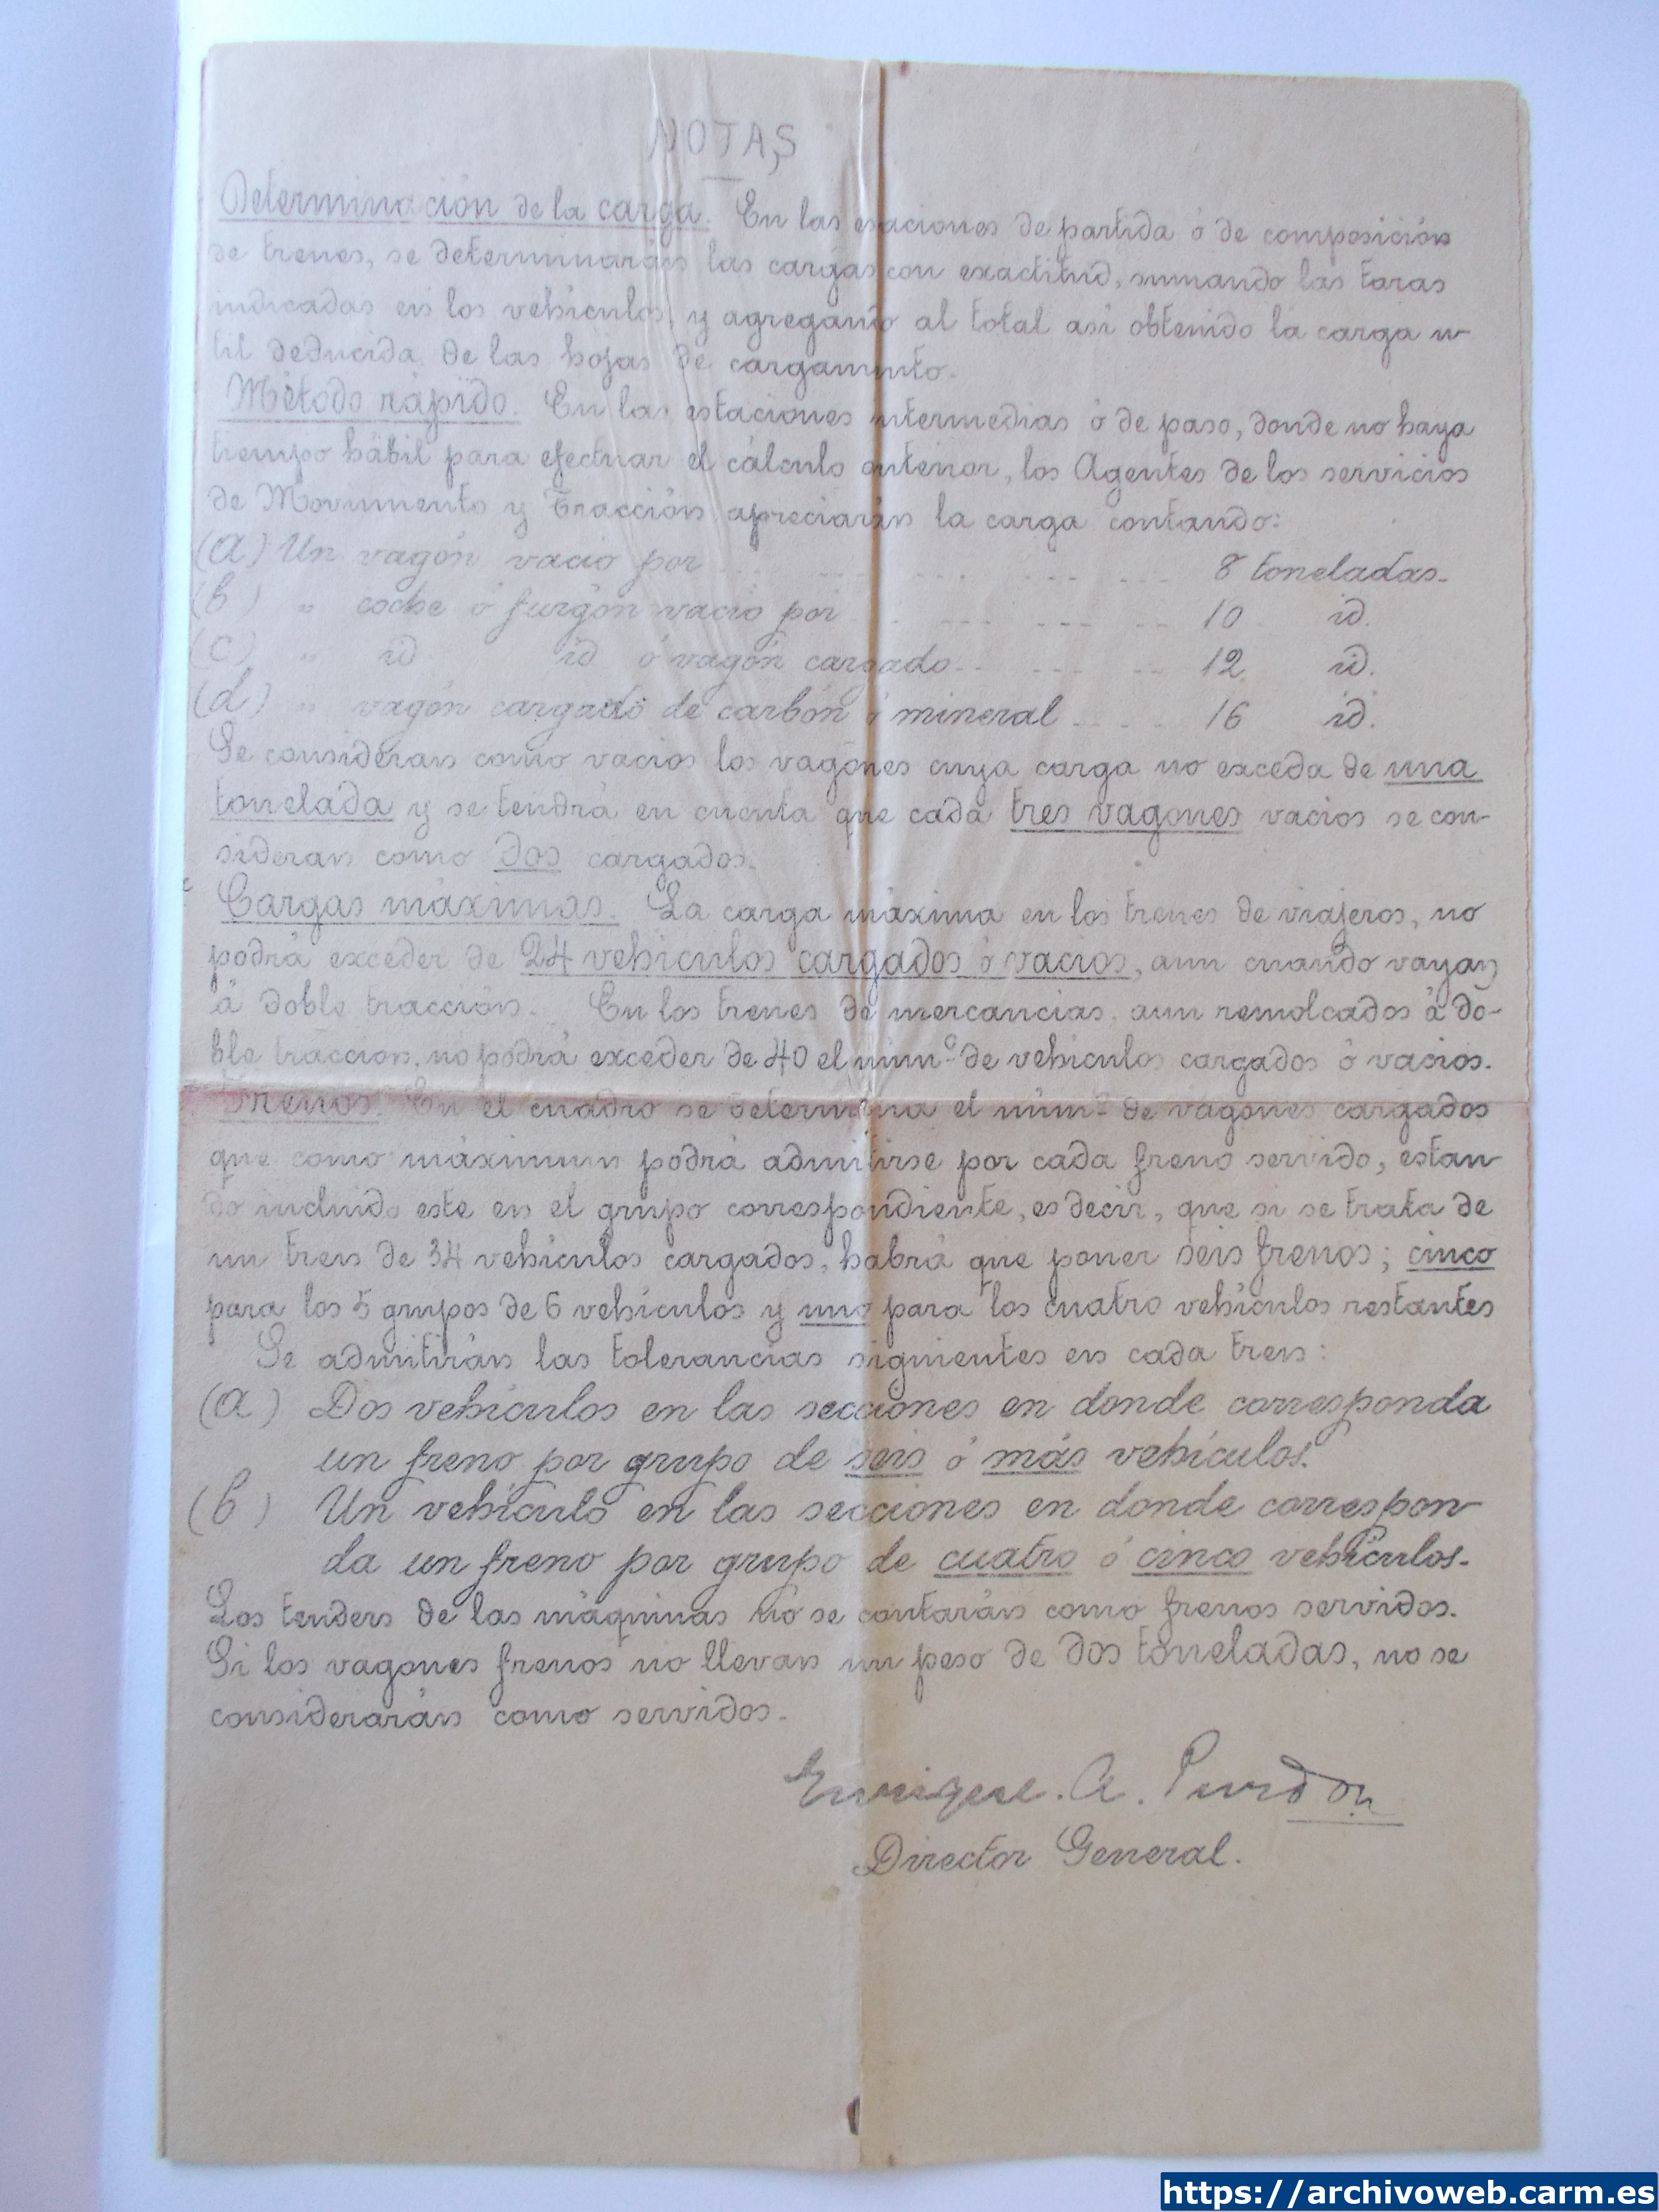 NOTAS
Determinación de la carga. En las esaciones de partida ó de composición
de trenes, se determinarán las cargas con exactitud, sumando las taras
indicadas en los vehículos, y agregando al total así obtenido la carga u-
til deducida de las hojas de cargamento.
Método rápido. En las estaciones intermedias ó de paso, donde no haya
tiempo hábil para efectuar el cálculo anterior, los Agentes de los servicios
de Movimiento y Tracción apreciarán la carga contando:
(a) Un vagón vacio por ... 8 toneladas.
(b) " coche ó furgón vacio por ... 10 id.
(c) " id id ó vagón cargado ... 12 id.
(d) " vagón cargado de carbón ó mineral ... 16 id.
Se consideran como vacios los vagones cuya carga no exceda de una
tonelada y se tendrá en cuenta que cada tres vagones vacios se con-
sideran como dos cargados.
Cargas máximas. La carga máxima en los trenes de viajeros, no
podrá exceder de 24 vehiculos cargados ó vacios, aun cuando vayan
á doble tracción. En los trenes de mercancias, aun remolcados á do-
ble traccion, no podrá exceder de 40 el núm.º de vehiculos cargados ó vacios.
Frenos. En el cuadro se determina el núm.º de vagones cargados
que como máximum podrá admitirse por cada freno servido, estan-
do incluido este en el grupo correspondiente, es decir, que si se trata de
un tren de 34 vehículos cargados, habrá que poner seis frenos; cinco
para los 5 grupos de 6 vehículos y uno para los cuatro vehículos restantes
Se admitirán las tolerancias siguientes en cada tren:
(a) Dos vehículos en las secciones en donde corresponda
un freno por grupo de seis ó más vehículos.
(b) Un vehículo en las secciones en donde correspon-
da un freno por grupo de cuatro ó cinco vehículos.
Los tenders de las máquinas no se contarán como frenos servidos.
Si los vagones frenos no llevan un peso de dos toneladas, no se
considerarán como servidos.
Enrique. A. Purdon
Director General.
https://archivoweb.carm.es